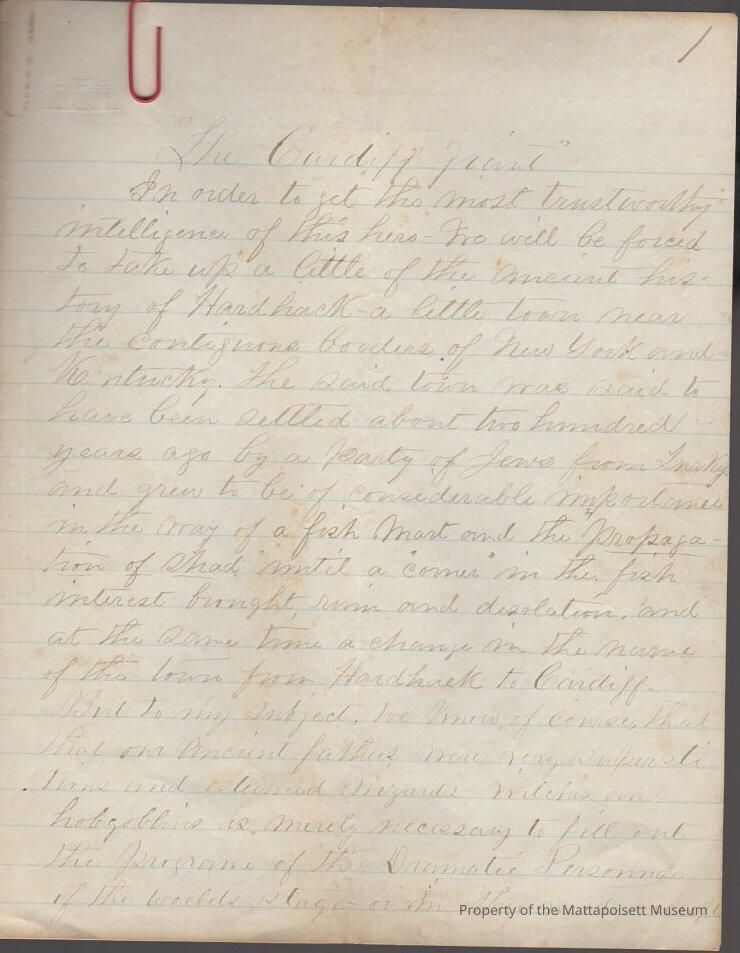 1
"The Cardiff Giant"
In order to get the most trustworthy
intelligence of this hero - we will be forced
to take up a little of the ancient his-
tory of Hardhack - a little town near
the contiguous borders of New York and
Kentucky. The said town was said to
have been settled about two hundred
years ago by a party of Jews from Turkey
and grew to be of considerable importance
in the way of a fish mart and the propaga-
tion of shad until a "corner" in the fish
interest brought ruin and desolation, and
at the same time a change in the name
of the town from Hardhack to Cardiff.
But to my subject. We know, of course, that
that our ancient fathers were very supersti
tious and esteemed wizards witches and
hobgoblins as merely necessary to fill out
the programe of the Dramatic Personnae
of the worlds stage - or in
Property of the Mattapoisett Museum